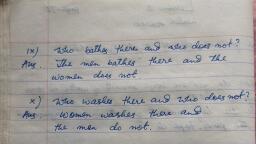 ix) Who bathes there and who does not?
Ans. The men bathes there and the
women does not
x) Who washes there and who does not?
Ans women washes there and
the men do not.